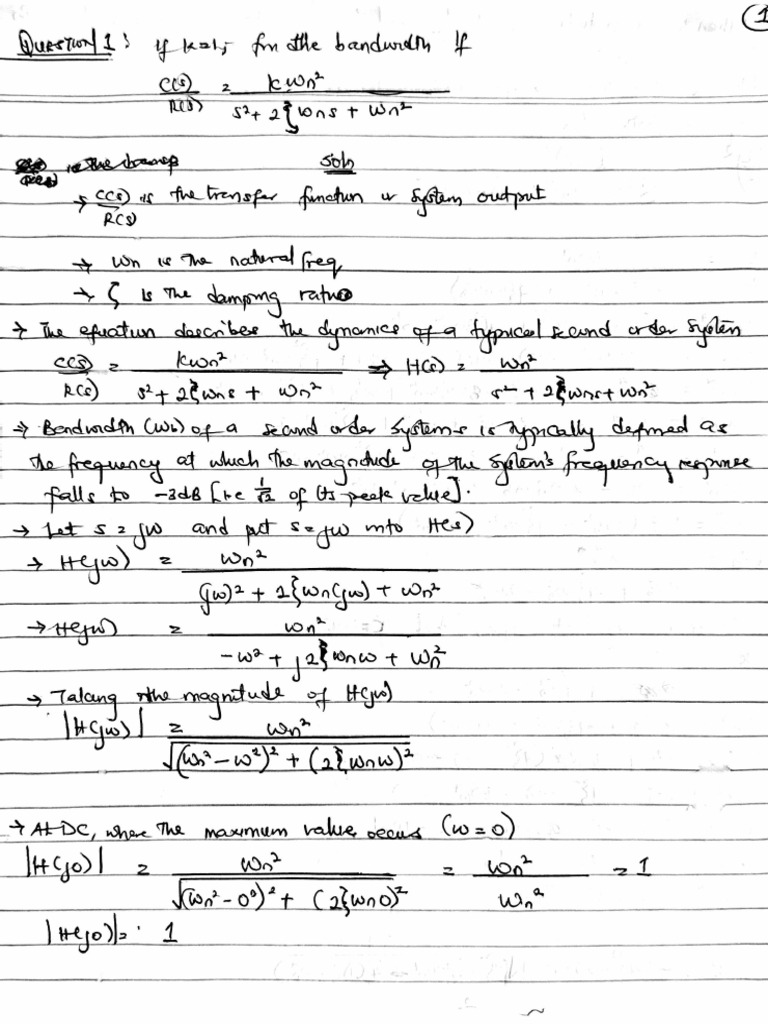 1
QUESTION 1: if k=1, find the bandwidth if
C(s)/R(s) = kωn²/(s² + 2ξωns + ωn²)
Soln
→ C(s)/R(s) is the transfer function or system output
→ ωn is the natural freq
→ ζ is the damping ratio
→ The equation describes the dynamics of a typical second order system
C(s)/R(s) = kωn²/(s² + 2ξωns + ωn²) ⇒ H(s) = ωn²/(s² + 2ξωns + ωn²)
→ Bandwidth (ωb) of a second order systems is typically defined as
the frequency at which the magnitude of the system's frequency response
falls to -3dB [i.e 1/√2 of its peak value].
→ Let s = jω and put s = jω into H(s)
→ H(jω) = ωn²/((jω)² + 2ξωn(jω) + ωn²)
→ H(jω) = ωn²/(-ω² + j2ξωnω + ωn²)
→ Taking the magnitude of H(jω)
|H(jω)| = ωn²/√((ωn² - ω²)² + (2ξωnω)²)
→ At DC, where the maximum value occurs (ω = 0)
|H(j0)| = ωn²/√((ωn² - 0²)² + (2ξωn0)²) = ωn²/ωn² = 1
|H(j0)| = 1